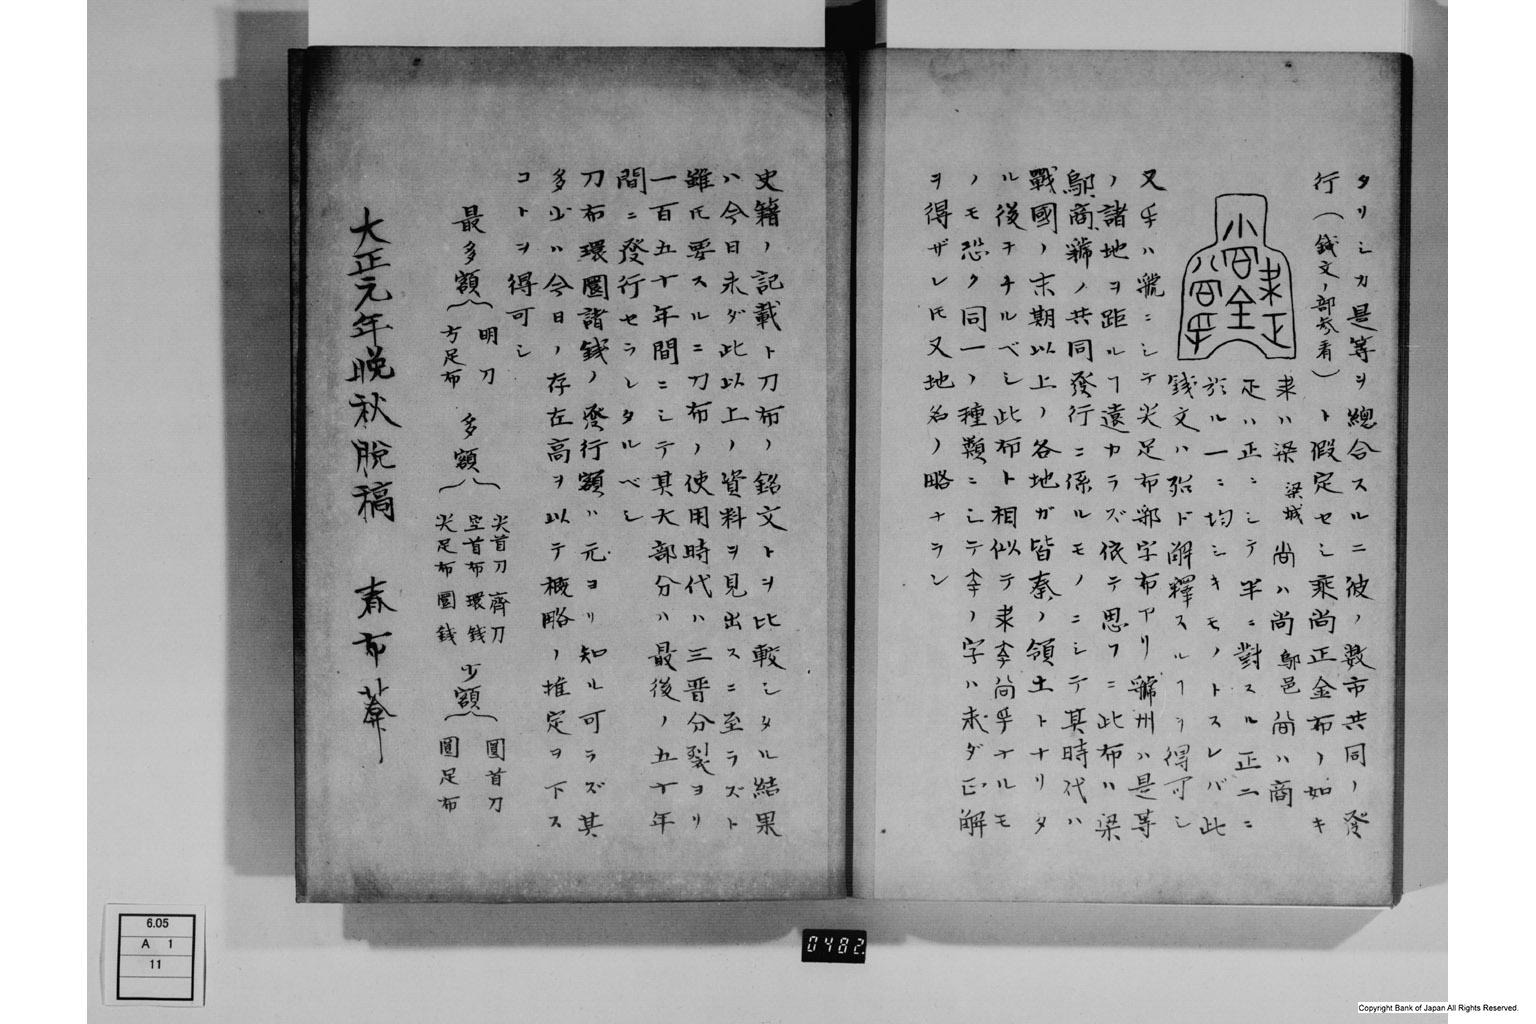 タリシカ是等ヲ總合スルニ彼ノ數市共同ノ發
行(錢文ノ部参看)ト假定セシ乘尚正金布ノ如キ
隶ハ梁 梁城 尚ハ尚 鄔邑 尙ハ商
疋ハ正ニシテ半ニ對スル正二ニ
於ル一ニ均シキモノトスレバ此
錢文ハ殆ド解釋スルヿヲ得可シ
又乎ハ虢ニシテ尖足布郛字布アリ虢州ハ是等
ノ諸地ヲ距ルヿ遠カラズ依テ思フニ此布ハ梁
鄔商虢ノ共同發行ニ係ルモノニシテ其時代ハ
戰國ノ末期以上ノ各地ガ皆秦ノ領土トナリタ
ル後ナルベシ此布ト相似テ隶 尙乎ナルモ
ノモ恐ク同一ノ種類ニシテ ノ字ハ未ダ正解
ヲ得ザレ𪜈又地名ノ略ナラン
史籍ノ記載ト刀布ノ銘文トヲ比較シタル結果
ハ今日未ダ此以上ノ資料ヲ見出スニ至ラズト
雖𪜈要スルニ刀布ノ使用時代ハ三晋分裂ヨリ
一百五十年間ニシテ其大部分ハ最後ノ五十年
間ニ發行セラレタルベシ
刀布環圜諸錢ノ發行額ハ元ヨリ知ル可ラズ其
多少ハ今日ノ存在高ヲ以テ概略ノ推定ヲ下ス
コトヲ得可シ
最多額
明刀
方足布
多額
尖首刀 齊刀
空首布 環錢
尖足布 圜錢
少額
圓首刀
圓足布
大正元年晩秋脫稿 春布菴
6.05
A 1
11
0482
Copyright Bank of Japan All Rights Reserved.